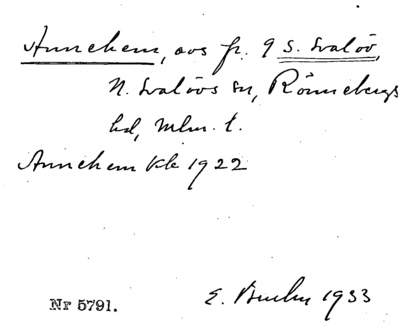 Annehem, avs fr. 9 S. Svalöv,
N. Svalövs sn, Rönnebergs
hd, Mlm. l.
Annehem kbr 1922
E. 1933
Nr 5791.